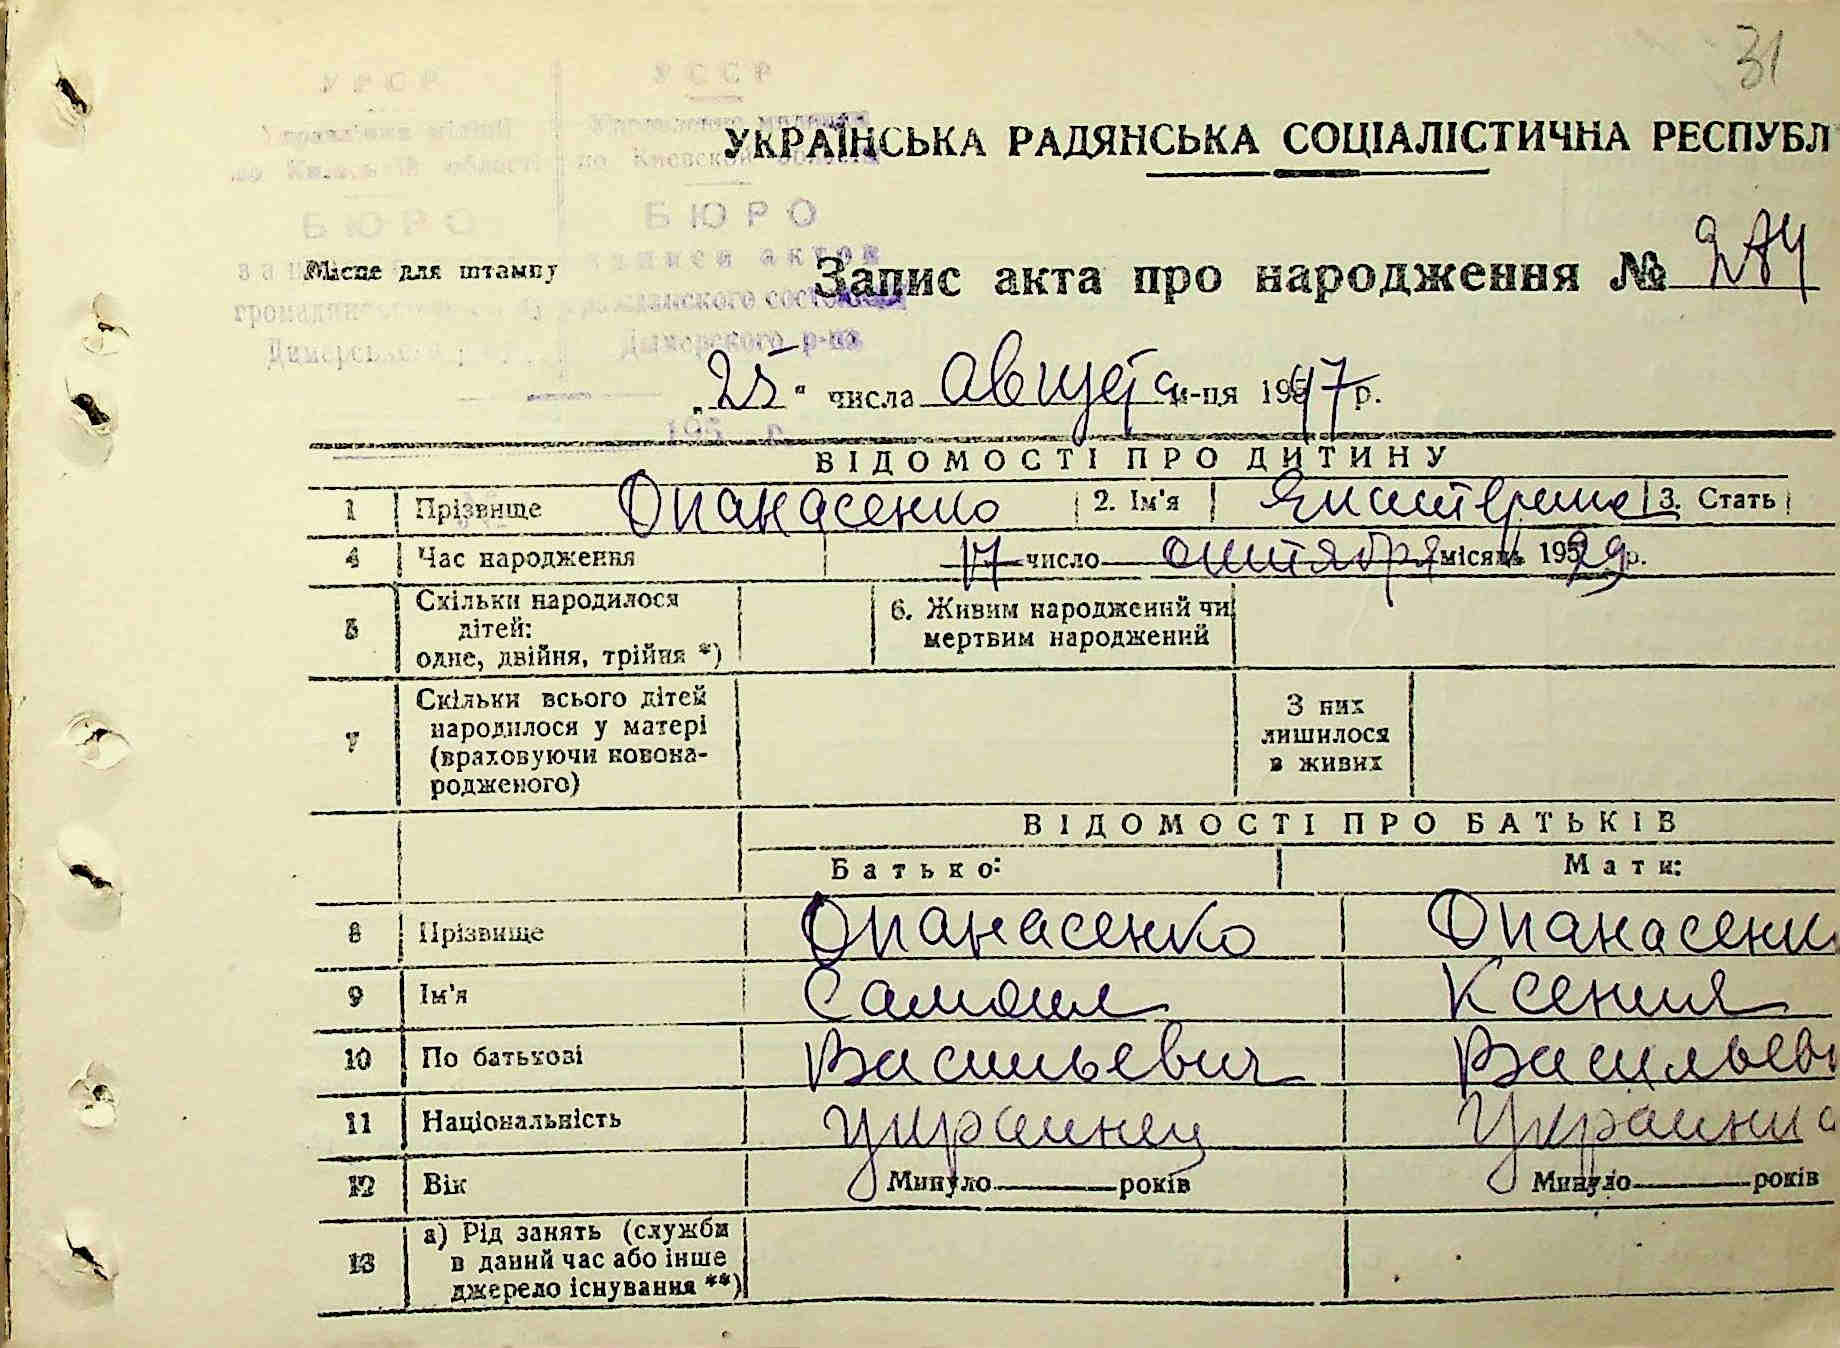 31
УРСР УССР
Управління міліції Управление милиции
по Київській області по Киевской области
УКРАЇНСЬКА РАДЯНСЬКА СОЦІАЛІСТИЧНА РЕСПУБЛ
БЮРО БЮРО
записи актов
Місце для штампу
Запис акта про народження № 284
гражданского состояния
Димерського Дымерского р-на
„25" числа августа м-ця 1947 р.
195 р.
ВІДОМОСТІ ПРО ДИТИНУ
1 Прізвище Опанасенко 2. Ім'я Екатерина 3. Стать
4 Час народження 17 число октября місяць 1929 р.
5 Скільки народилося дітей: одне, двійня, трійня *) 6. Живим народжений чи мертвим народжений
7 Скільки всього дітей народилося у матері (враховуючи новонародженого) З них лишилося в живих
ВІДОМОСТІ ПРО БАТЬКІВ
Батько: Мати:
8 Прізвище Опанасенко Опанасенк
9 Ім'я Самоил Ксения
10 По батькові Васильевич Васильев
11 Національність украинец Украинка
12 Вік Минуло років Минуло років
13 а) Рід занять (служби в даний час або інше джерело існування **)